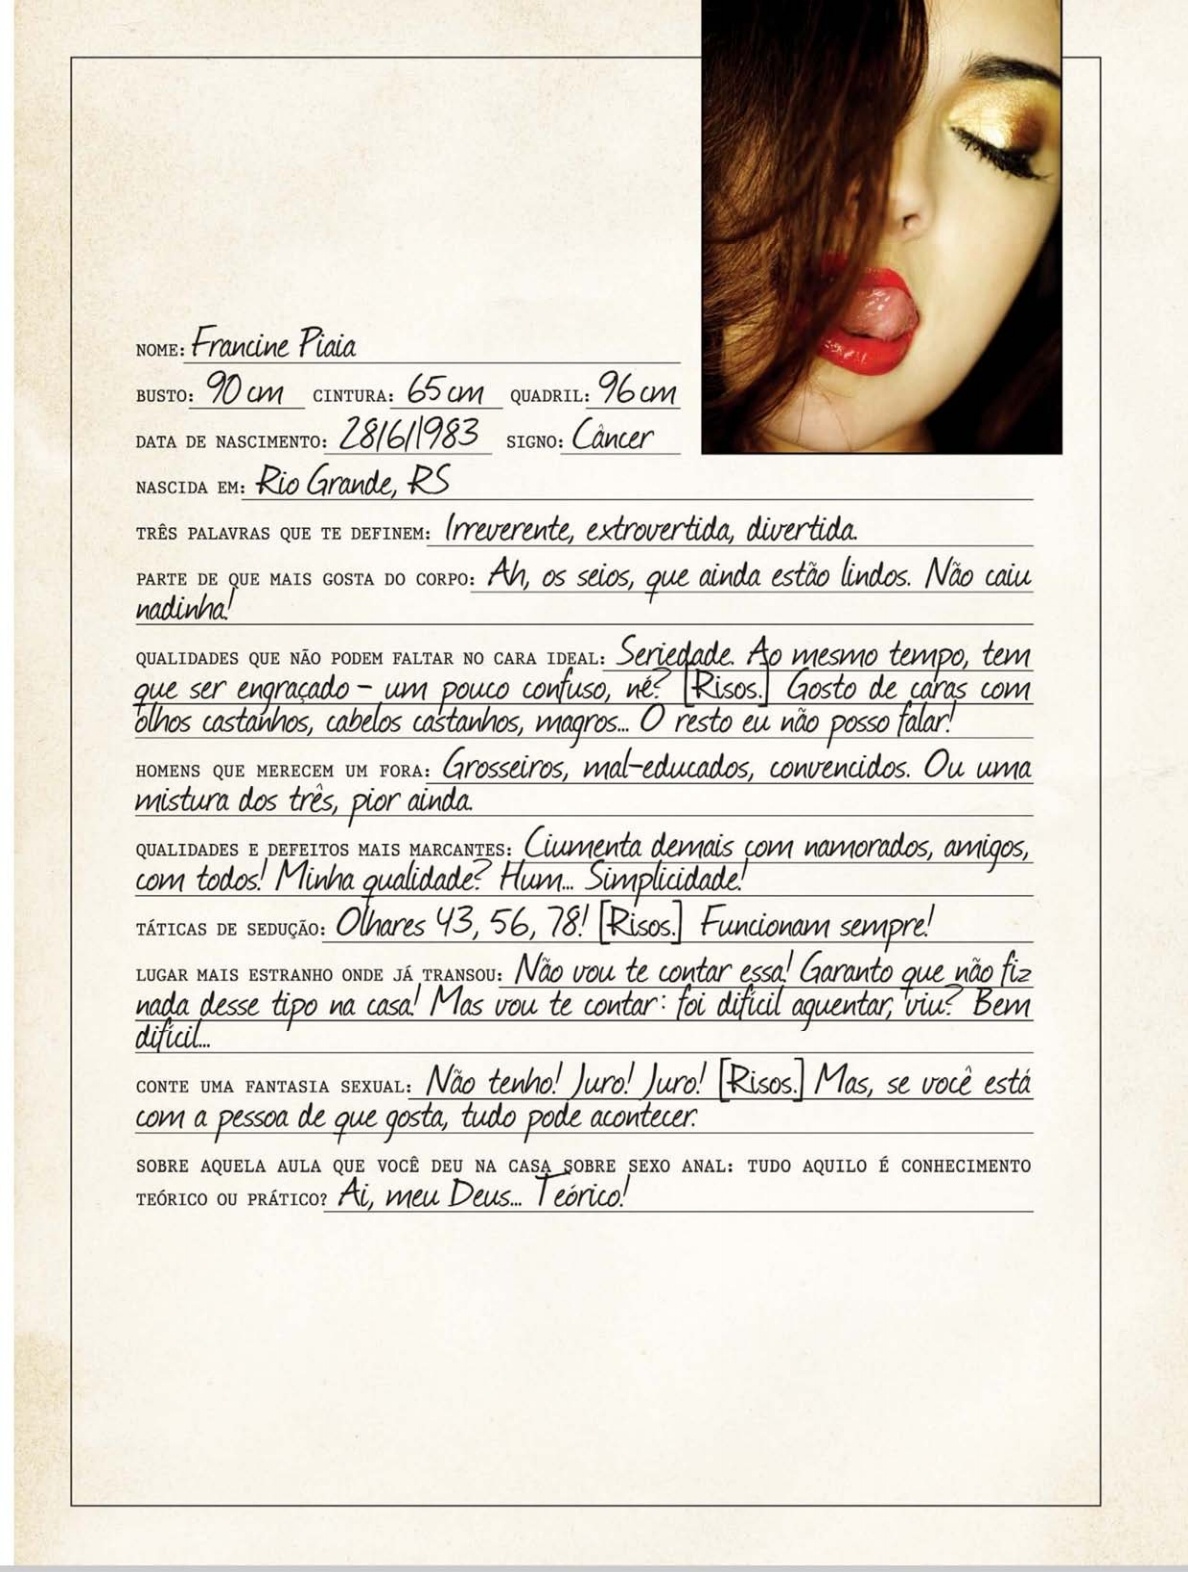 NOME: Francine Piaia
BUSTO: 90 cm CINTURA: 65 cm QUADRIL: 96 cm
DATA DE NASCIMENTO: 28/6/1983 SIGNO: Câncer
NASCIDA EM: Rio Grande, RS
TRÊS PALAVRAS QUE TE DEFINEM: Irreverente, extrovertida, divertida.
PARTE DE QUE MAIS GOSTA DO CORPO: Ah, os seios, que ainda estão lindos. Não caiu
nadinha!
QUALIDADES QUE NÃO PODEM FALTAR NO CARA IDEAL: Seriedade. Ao mesmo tempo, tem
que ser engraçado – um pouco confuso, né? [Risos.] Gosto de caras com
olhos castanhos, cabelos castanhos, magros... O resto eu não posso falar!
HOMENS QUE MERECEM UM FORA: Grosseiros, mal-educados, convencidos. Ou uma
mistura dos três, pior ainda.
QUALIDADES E DEFEITOS MAIS MARCANTES: Ciumenta demais com namorados, amigos,
com todos! Minha qualidade? Hum... Simplicidade!
TÁTICAS DE SEDUÇÃO: Olhares 43, 56, 78! [Risos.] Funcionam sempre!
LUGAR MAIS ESTRANHO ONDE JÁ TRANSOU: Não vou te contar essa! Garanto que não fiz
nada desse tipo na casa! Mas vou te contar: foi difícil aguentar, viu? Bem
difícil...
CONTE UMA FANTASIA SEXUAL: Não tenho! Juro! Juro! [Risos.] Mas, se você está
com a pessoa de que gosta, tudo pode acontecer.
SOBRE AQUELA AULA QUE VOCÊ DEU NA CASA SOBRE SEXO ANAL: TUDO AQUILO É CONHECIMENTO
TEÓRICO OU PRÁTICO? Ai, meu Deus... Teórico!